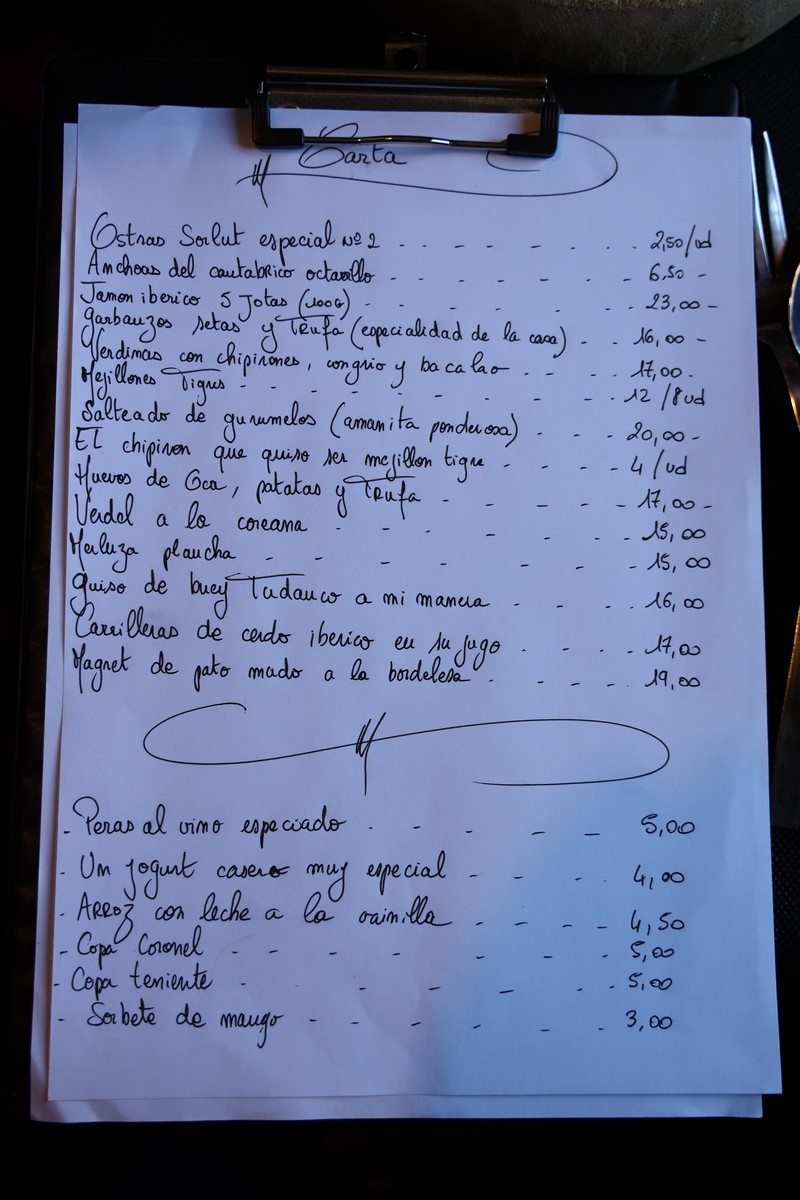 Carta
Ostras Sorlut especial Nº 2 - - - - - - - 2,50/ud
Anchoas del cantabrico octavillo - - - - - - 6,50 -
Jamon iberico 5 Jotas (100G) - - - - - - 23,00 -
Garbanzos setas y Trufa (especialidad de la casa) - - 16,00 -
Verdinas con chipirones, congrio y bacalao - - - 17,00 -
Mejillones Tigres - - - - - - - - - 12 /8ud
Salteado de gurumelos (amanita ponderosa) - - - 20,00 -
El chipiron que quiso ser mejillon tigre - - - - 4 /ud
Huevos de Oca, patatas y Trufa - - - - - 17,00 -
Verdel a la coreana - - - - - - - 15,00
Merluza plancha - - - - - - - 15,00
Guiso de buey Tudanco a mi manera - - - - 16,00
Carrilleras de cerdo iberico en su jugo - - - - 17,00
Magret de pato mudo a la bordelesa - - - - 19,00
- Peras al vino especiado - - - - - 5,00
- Um yogurt casero muy especial - - - - 4,00
- Arroz con leche a la vainilla - - - - 4,50
- Copa Coronel - - - - - - - 5,00
- Copa teniente - - - - - - - 5,00
- Sorbete de mango - - - - - - 3,00